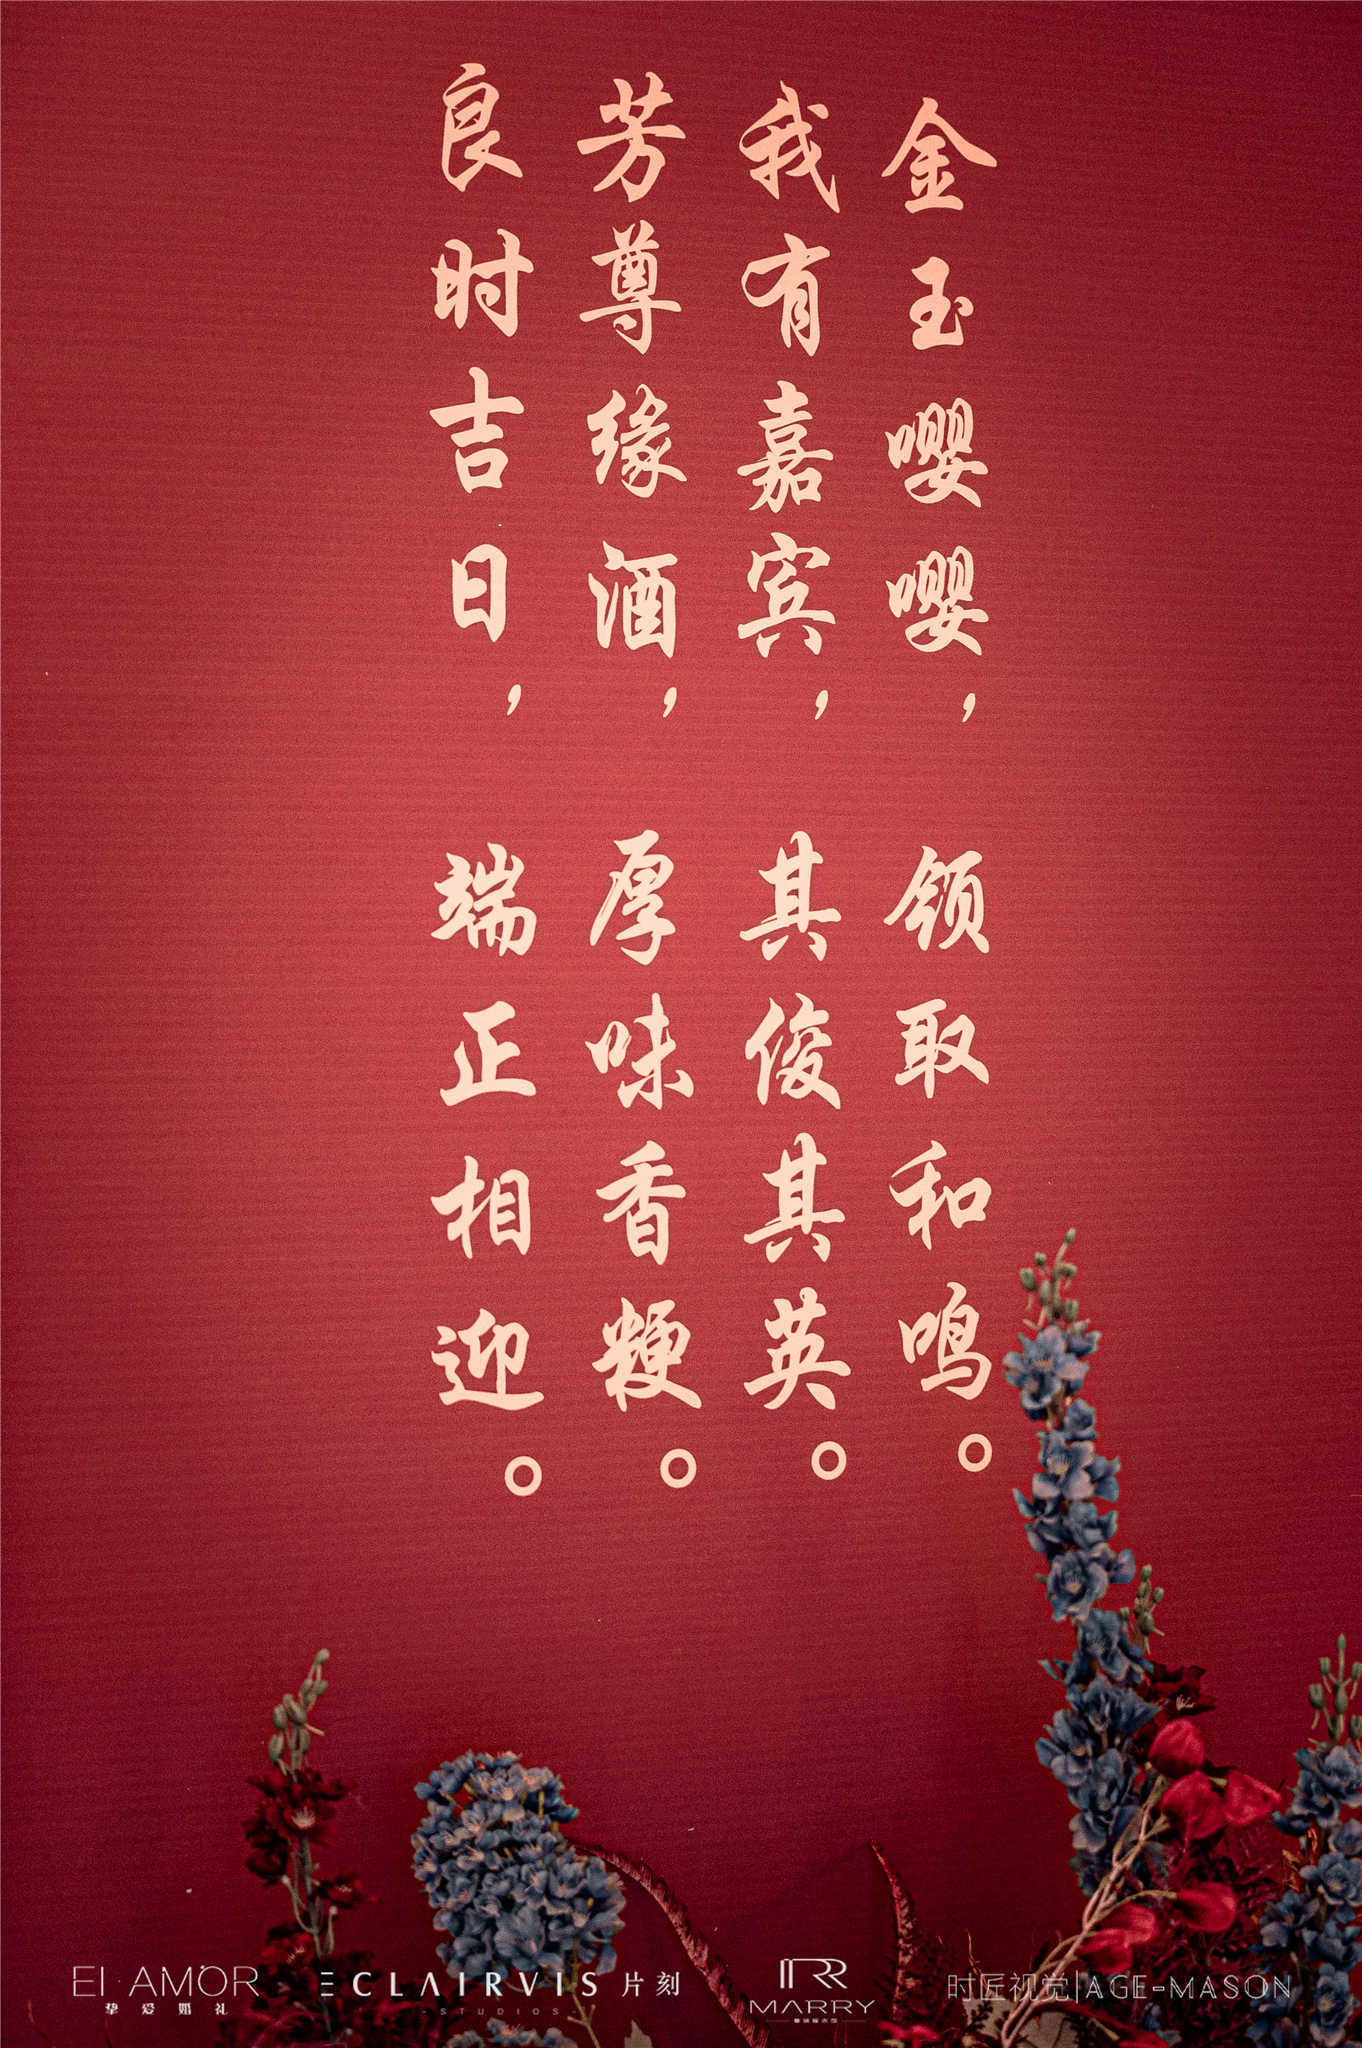 金玉嘤嘤，领取和鸣。
我有嘉宾，其俊其英。
芳尊缘酒，厚味香粳。
良时吉日，端正相迎。
EL AMOR
挚爱婚礼
ECLAIRVIS 片刻
-STUDIOS-
MARRY
时匠视觉|AGE-MASON